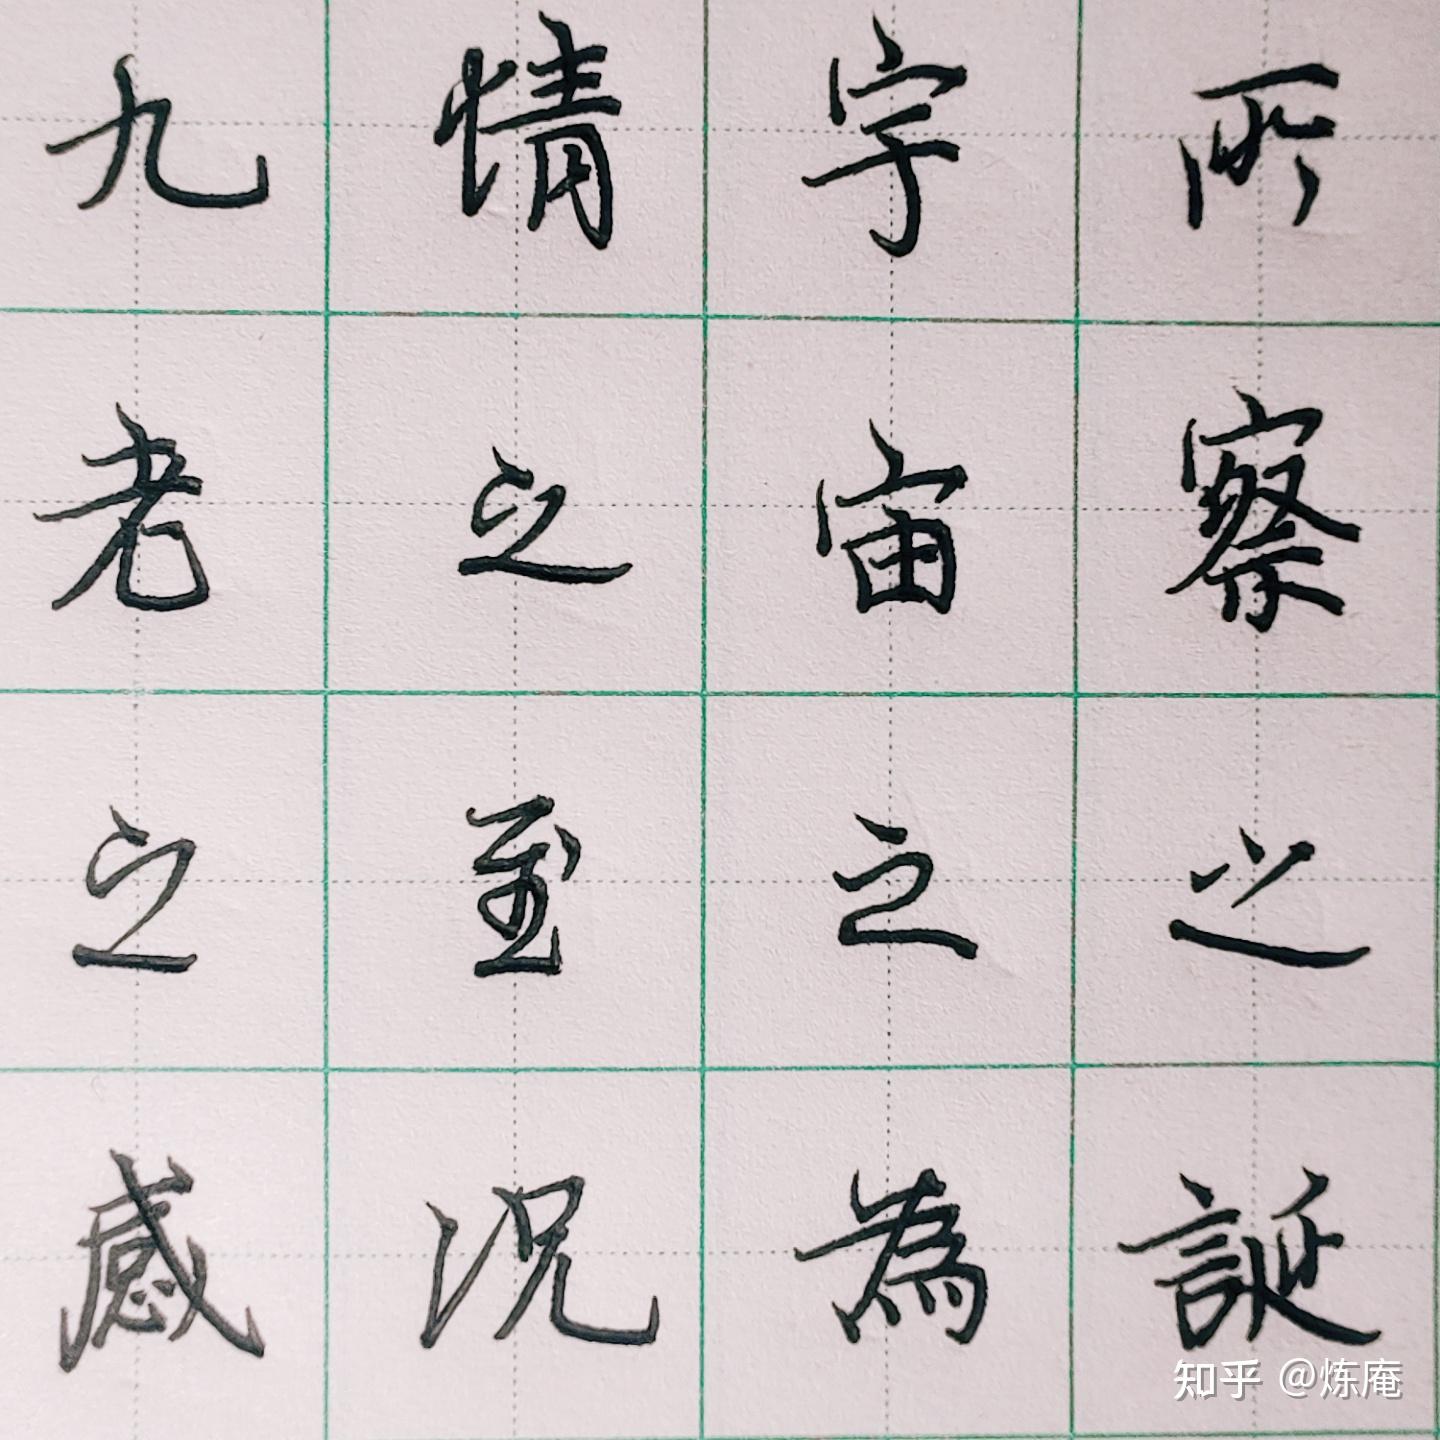 所察之誕
宇宙之為
情之至況
九老之感
知乎 @炼庵